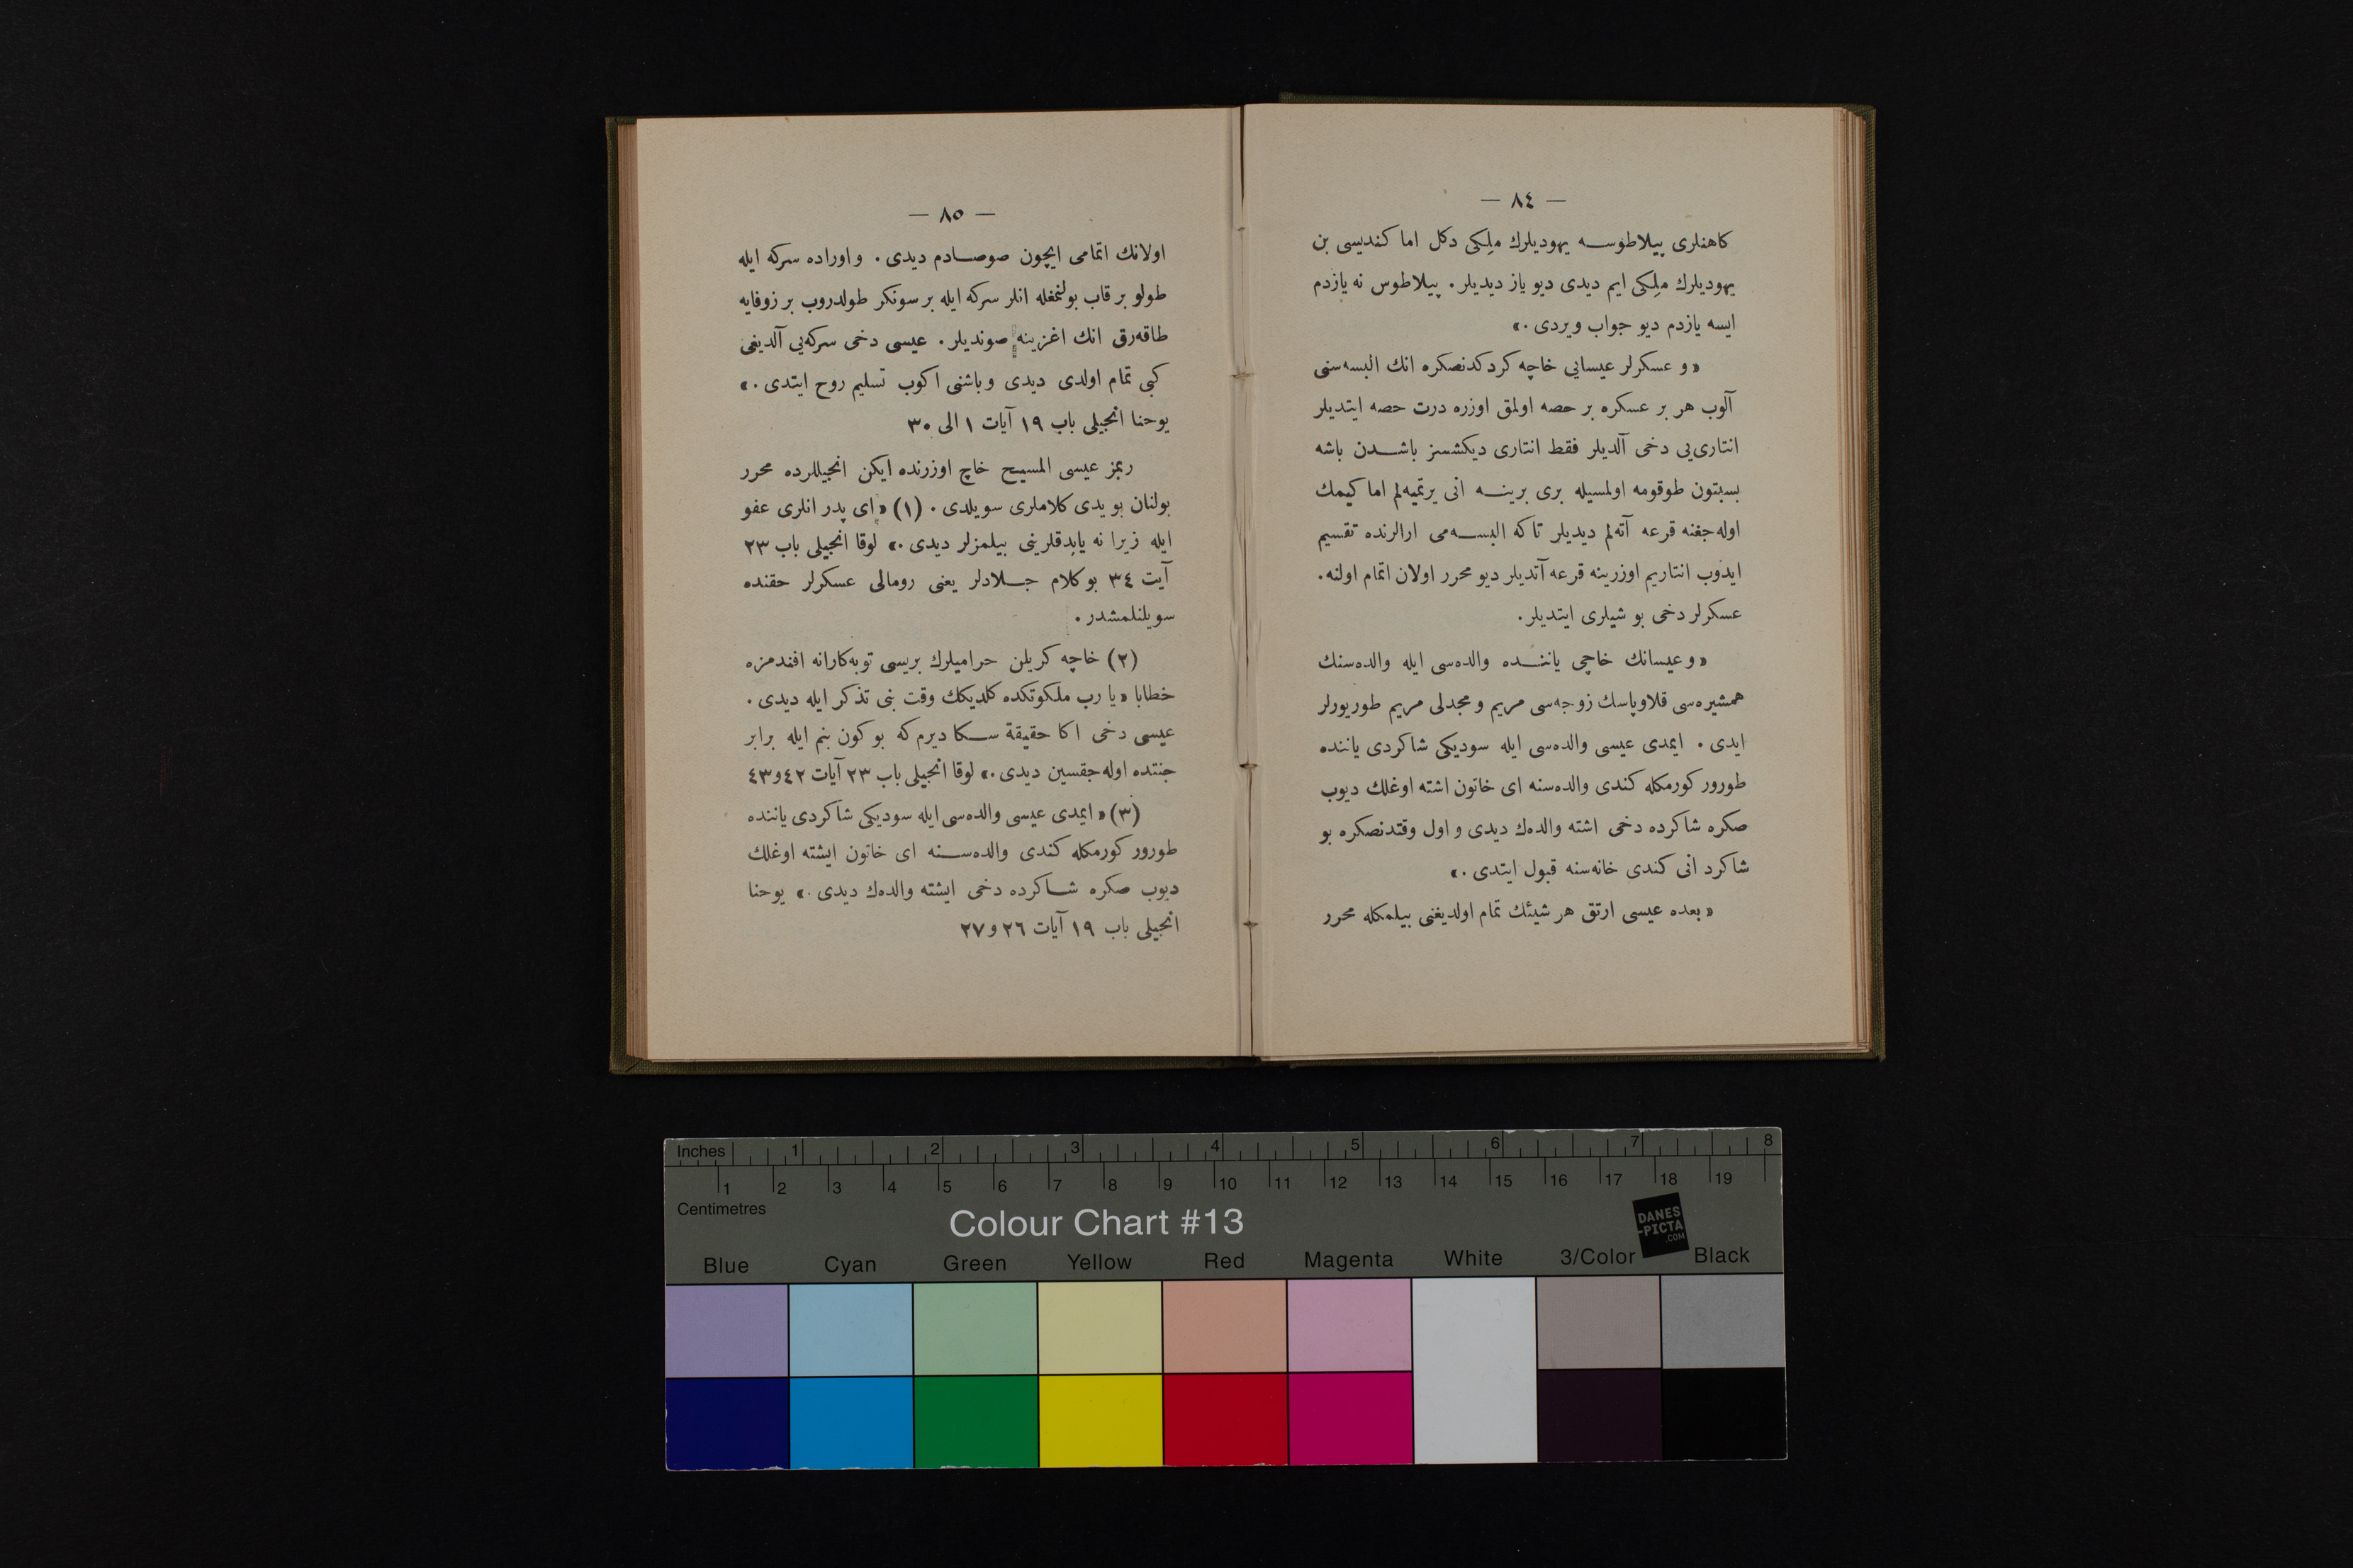 — ٨٤ —
كاهنلرى پيلاطوسه يهوديلرك ملِكى دكل اما كنديسى بن
يهوديلرك ملِكى ايم ديدى ديو ياز ديديلر. پيلاطوس نه يازدم
ايسه يازدم ديو جواب ويردى.»
«و عسكرلر عيسايى خاچه كردكدنصكره انك البسه‌سنى
آلوب هر بر عسكره بر حصه اولمق اوزره درت حصه ايتديلر
انتارى‌يى دخى آلديلر فقط انتارى ديكشسز باشدن باشه
بسبتون طوقومه اولمسيله برى برينه انى يرتميه‌لم اما كيمك
اوله‌جغنه قرعه آته‌لم ديديلر تاكه البسه‌مى ارالرنده تقسيم
ايدوب انتاريم اوزرينه قرعه آتديلر ديو محرر اولان اتمام اولنه.
عسكرلر دخى بو شيلرى ايتديلر.
«و عيسانك خاچى ياننده والده‌سى ايله والده‌سنك
همشيره‌سى قلاوپاسك زوجه‌سى مريم و مجدلى مريم طوريورلر
ايدى. ايمدى عيسى والده‌سى ايله سوديكى شاكردى ياننده
طورور كورمكله كندى والده‌سنه اى خاتون اشته اوغلك ديوب
صكره شاكرده دخى اشته والده‌ك ديدى و اول وقتدنصكره بو
شاكرد انى كندى خانه‌سنه قبول ايتدى.»
«بعده عيسى ارتق هر شيئك تمام اولديغنى بيلمكله محرر
— ٨٥ —
اولانك اتمامى ايچون صوصادم ديدى. و اوراده سركه ايله
طولو بر قاب بولنمغله انلر سركه ايله بر سونكر طولدروب بر زوفايه
طاقه‌رق انك اغزينه صونديلر. عيسى دخى سركه‌يى آلديغى
كبى تمام اولدى ديدى و باشنى اكوب تسليم روح ايتدى.»
يوحنا انجيلى باب ١٩ آيات ١ الى ٣٠
ربمز عيسى المسيح خاچ اوزرنده ايكن انجيللرده محرر
بولنان بو يدى كلاملرى سويلدى. (١) «اى پدر انلرى عفو
ايله زيرا نه ياپدقلرينى بيلمزلر ديدى.» لوقا انجيلى باب ٢٣
آيت ٣٤ بو كلام جلادلر يعنى رومالى عسكرلر حقنده
سويلنلمشدر.
(٢) خاچه كريلن حراميلرك بريسى توبه‌كارانه افندمزه
خطابا «يا رب ملكوتكده كلديكك وقت بنى تذكر ايله ديدى.
عيسى دخى اكا حقيقة سكا ديرم كه بو كون بنم ايله برابر
جنتده اوله‌جقسين ديدى.» لوقا انجيلى باب ٢٣ آيات ٤٢ و ٤٣
(٣) «ايمدى عيسى والده‌سى ايله سوديكى شاكردى ياننده
طورور كورمكله كندى والده‌سنه اى خاتون ايشته اوغلك
ديوب صكره شاكرده دخى ايشته والده‌ك ديدى.» يوحنا
انجيلى باب ١٩ آيات ٢٦ و ٢٧
Inches 1 2 3 4 5 6 7 8
1 2 3 4 5 6 7 8 9 10 11 12 13 14 15 16 17 18 19
Centimetres
Colour Chart #13
DANES
-PICTA
.COM
Blue Cyan Green Yellow Red Magenta White 3/Color Black